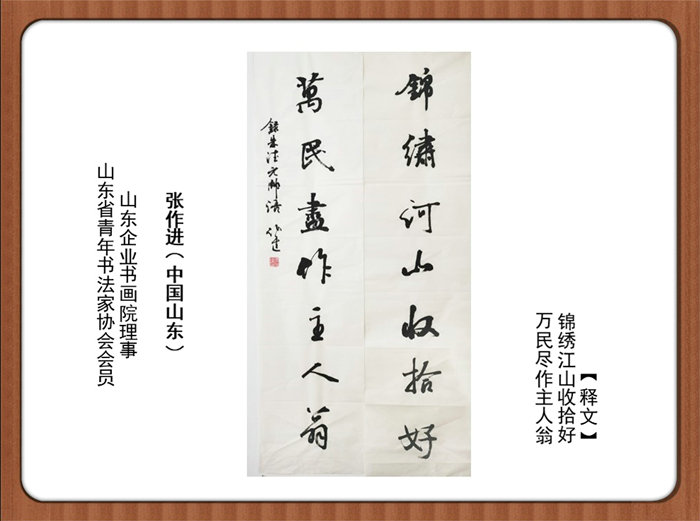 【释文】
锦绣江山收拾好
万民尽作主人翁
錦繡河山收拾好
萬民盡作主人翁
錄朱德元帥詩 作進
张作进（中国山东）
山东企业书画院理事
山东省青年书法家协会会员